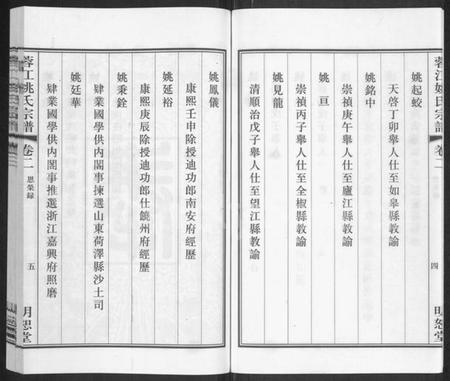 蓉江姚氏宗譜
卷二
四
明恕堂
姚起蛟
天啓丁卯舉人仕至如皋縣教諭
姚銘中
崇禎庚午舉人仕至廬江縣教諭
姚亘
崇禎丙子舉人仕至全椒縣教諭
姚見龍
清順治戊子舉人仕至望江縣教諭
姚鳳儀
康熙壬申除授迪功郎南安府經歷
姚延裕
康熙庚辰除授迪功郎仕饒州府經歷
姚秉銓
肄業國學供內閣事揀選山東荷澤縣沙土司
姚廷華
肄業國學供內閣事推選浙江嘉興府照磨
蓉江姚氏宗譜
卷二
恩榮錄
五
明恕堂